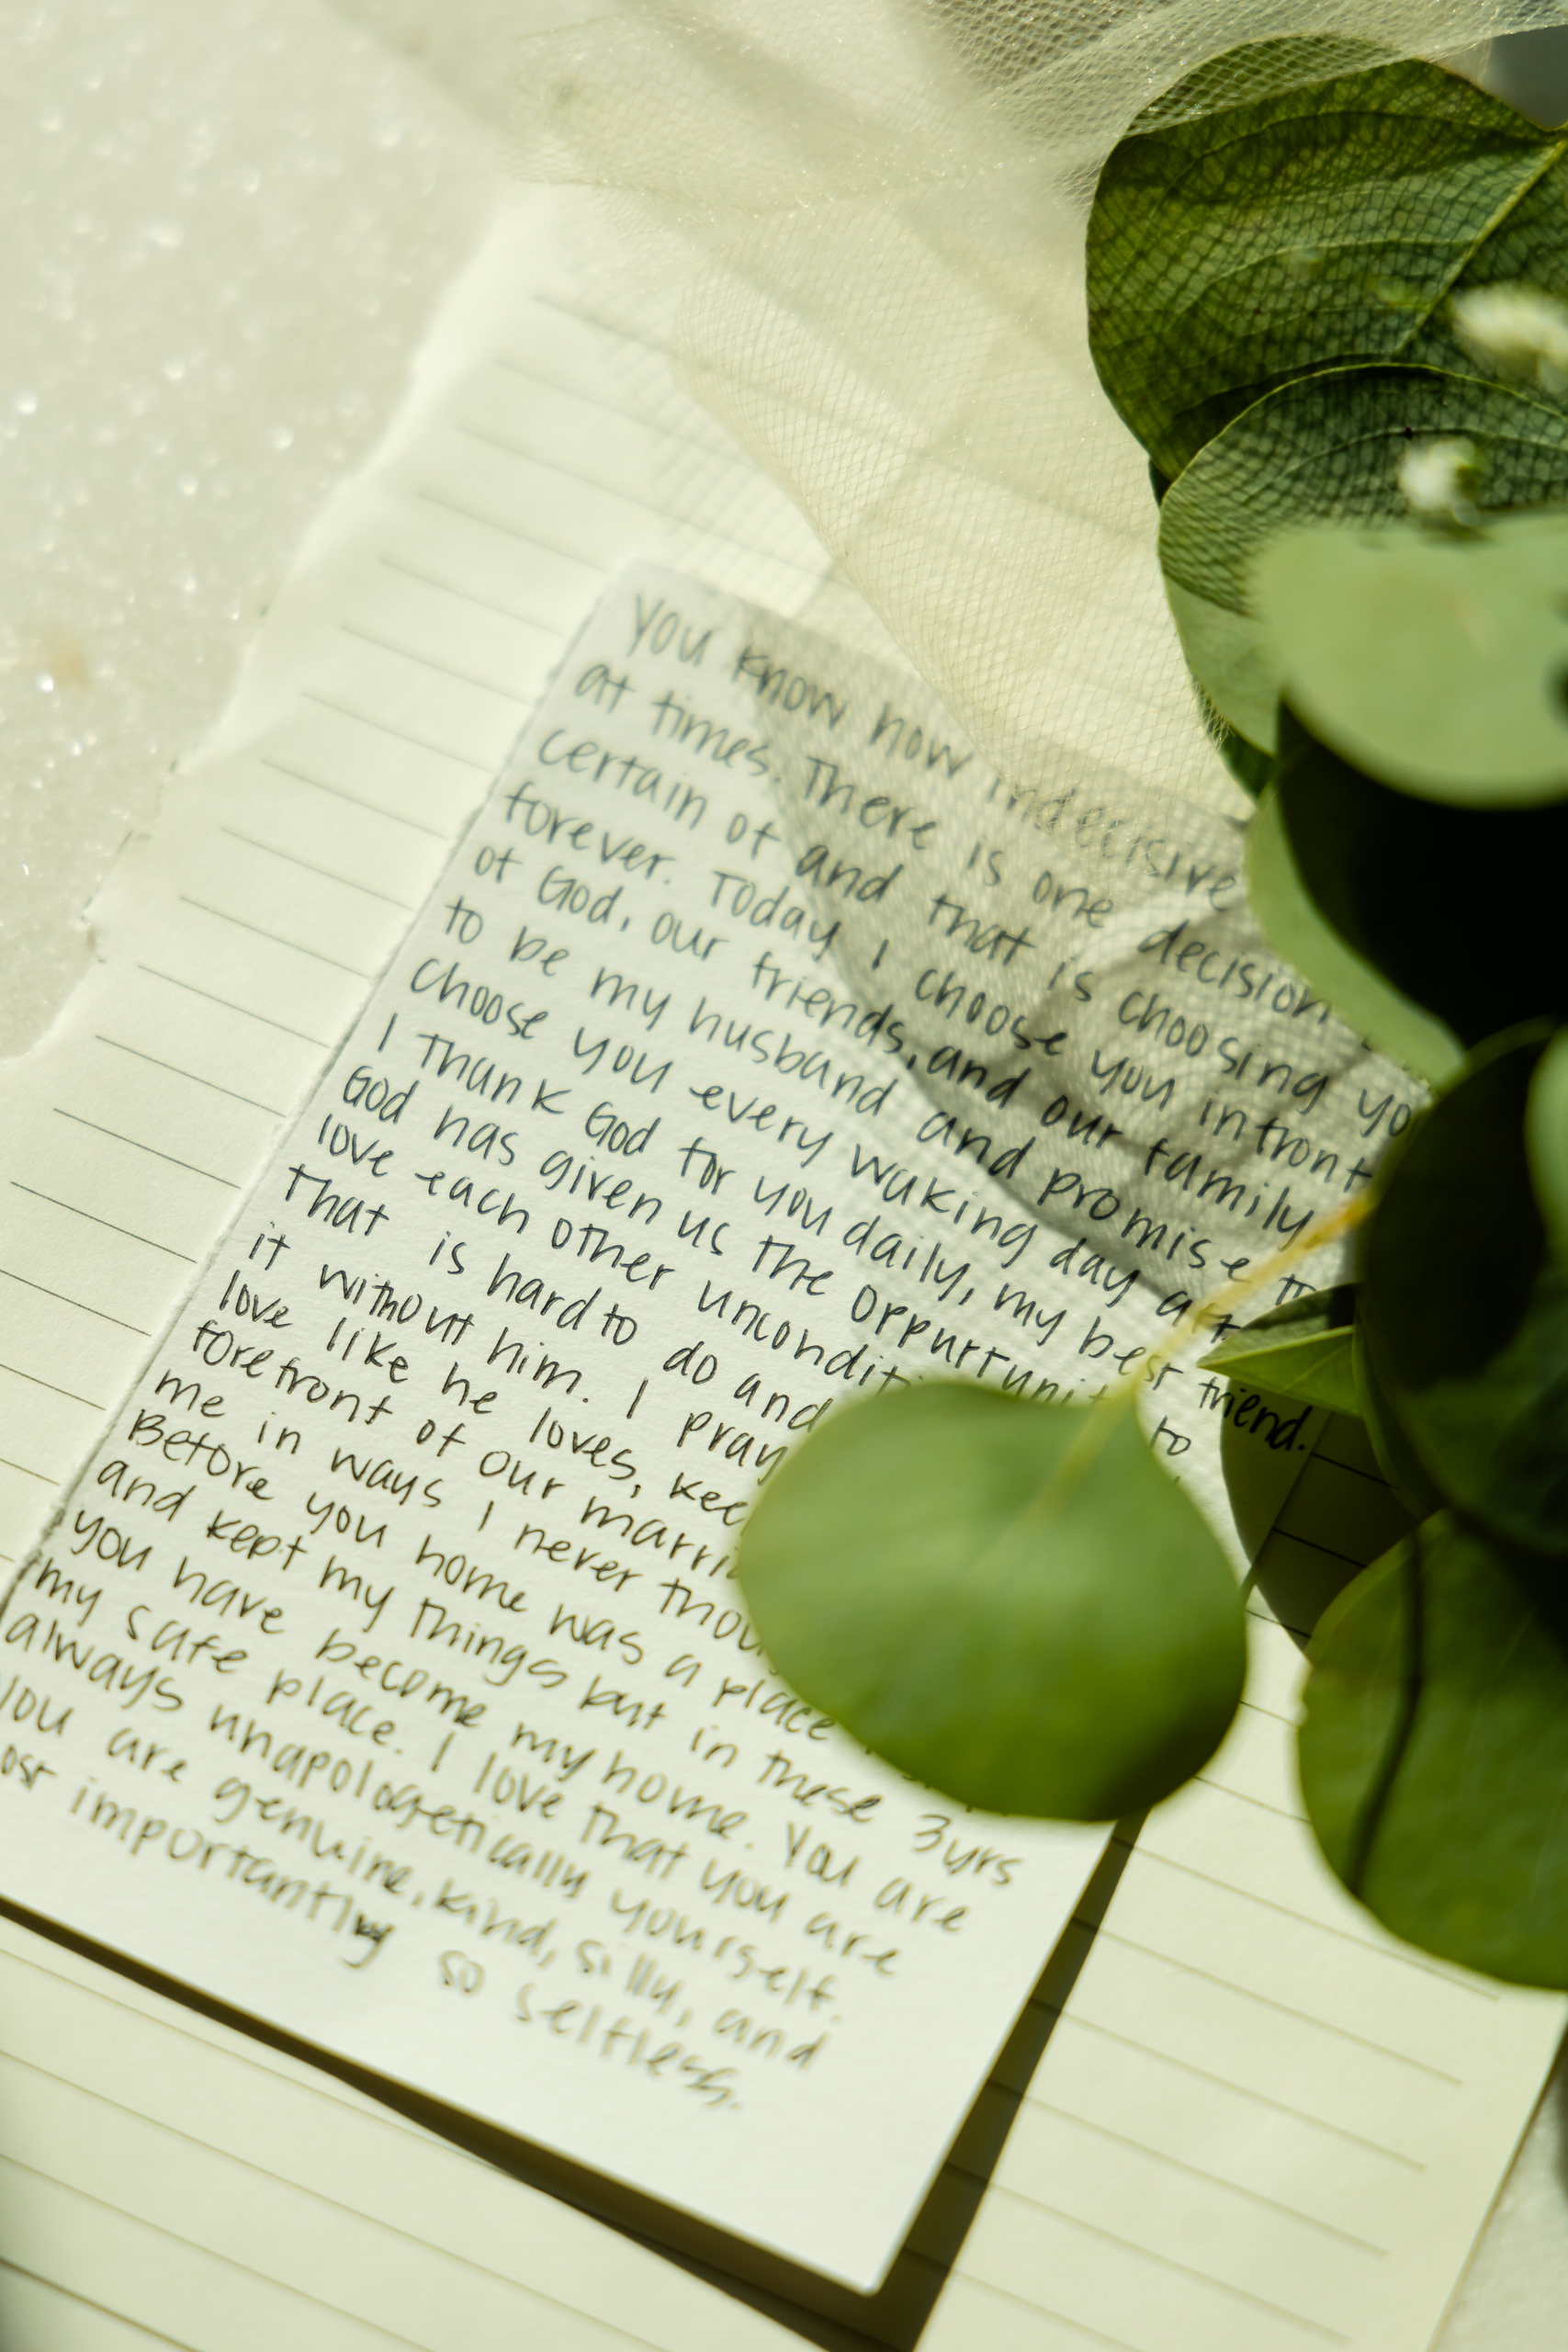 You know how indecisive
at times. There is one decision
certain of and that is choosing yo
forever. Today I choose you infront
of God, our friends, and our family
to be my husband and promise to
choose you every waking day aft
I thank God for you daily, my best friend.
God has given us the oppurtunit to
love each other uncondit
that is hard to do and
it without him. I pray
love like he loves, kee
forefront of our marri
me in ways I never thou
Before you home was a place
and kept my things but in these 3yrs
you have become my home. You are
my safe place. I love that you are
always unapologetically yourself.
You are genuine, kind, silly, and
ost importantly so selfless.